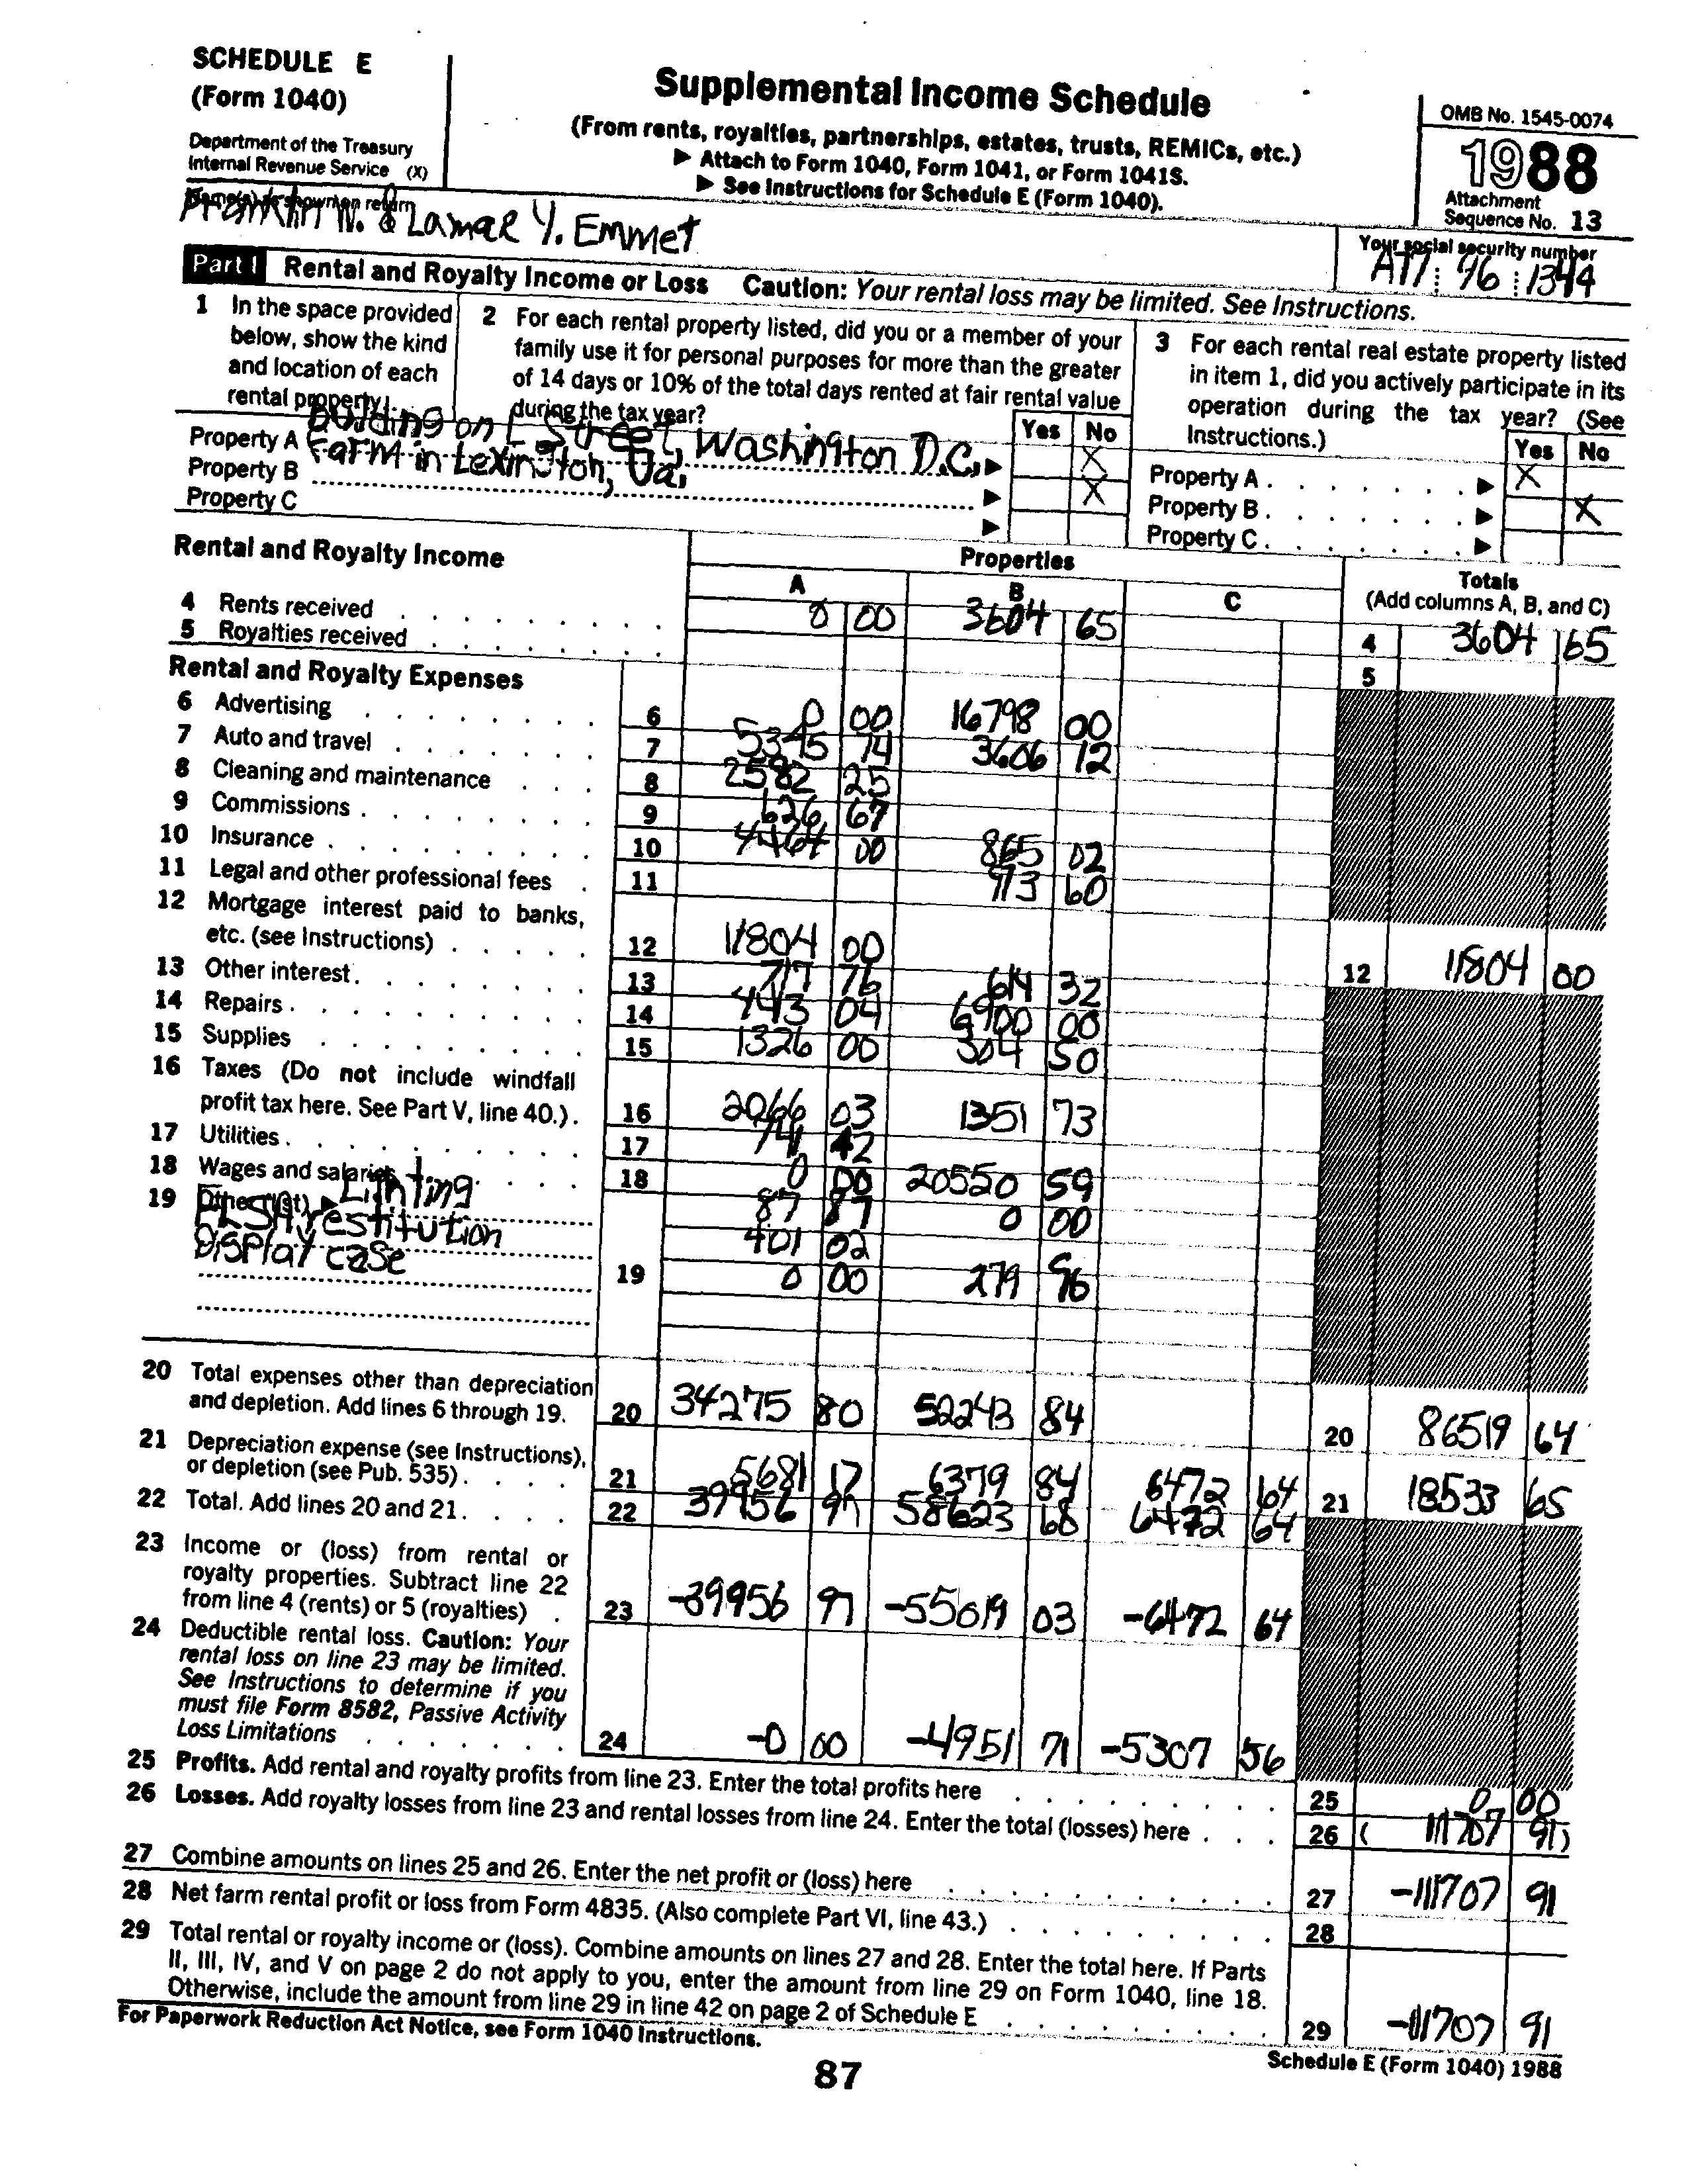 SCHEDULE E
(Form 1040)
Department of the Treasury
Internal Revenue Service (X)
Supplemental Income Schedule
(From rents, royalties, partnerships, estates, trusts, REMICs, etc.)
▶ Attach to Form 1040, Form 1041, or Form 1041S.
▶ See Instructions for Schedule E (Form 1040).
OMB No. 1545-0074
1988
Attachment
Sequence No. 13
Name(s) as shown on return
Franklin N. & Lamar Y. Emmet
Your social security number
96 1344
Part I Rental and Royalty Income or Loss Caution: Your rental loss may be limited. See Instructions.
1 In the space provided below, show the kind and location of each rental property.
2 For each rental property listed, did you or a member of your family use it for personal purposes for more than the greater of 14 days or 10% of the total days rented at fair rental value during the tax year?
3 For each rental real estate property listed in item 1, did you actively participate in its operation during the tax year? (See Instructions.)
Yes No
Yes No
Property A Building on E Street, Washington D.C. ▶ X
Property B Farm in Lexington, Va. ▶ X
Property C ▶
Property A ▶ X
Property B ▶ X
Property C ▶
Rental and Royalty Income
Properties
A B C
Totals
(Add columns A, B, and C)
4 Rents received 0 00 3604 65 4 3604 65
5 Royalties received 5
Rental and Royalty Expenses
6 Advertising 6 0 00 16798 00
7 Auto and travel 7 5345 74 3606 12
8 Cleaning and maintenance 8 2582 25
9 Commissions 9 626 67
10 Insurance 10 4464 00 865 02
11 Legal and other professional fees 11 973 60
12 Mortgage interest paid to banks, etc. (see Instructions) 12 11804 00 12 11804 00
13 Other interest 13 717 76 614 32
14 Repairs 14 443 04 6900 00
15 Supplies 15 1326 00 304 50
16 Taxes (Do not include windfall profit tax here. See Part V, line 40.) 16 2066 03 1351 73
17 Utilities 17 42
18 Wages and salaries 18 0 00 20550 59
19 Other (list) ▶ Lighting 87 87 0 00
FLSA restitution 401 02
Display case 19 0 00 279 96
20 Total expenses other than depreciation and depletion. Add lines 6 through 19. 20 34275 80 52243 84 20 86519 64
21 Depreciation expense (see Instructions), or depletion (see Pub. 535) 21 5681 17 6379 84 6472 64 21 18533 65
22 Total. Add lines 20 and 21. 22 39956 97 58623 68 6472 64
23 Income or (loss) from rental or royalty properties. Subtract line 22 from line 4 (rents) or 5 (royalties) 23 -39956 97 -55019 03 -6472 64
24 Deductible rental loss. Caution: Your rental loss on line 23 may be limited. See Instructions to determine if you must file Form 8582, Passive Activity Loss Limitations 24 -0 00 -4951 71 -5307 56
25 Profits. Add rental and royalty profits from line 23. Enter the total profits here 25 0 00
26 Losses. Add royalty losses from line 23 and rental losses from line 24. Enter the total (losses) here 26 ( 111707 91)
27 Combine amounts on lines 25 and 26. Enter the net profit or (loss) here 27 -111707 91
28 Net farm rental profit or loss from Form 4835. (Also complete Part VI, line 43.) 28
29 Total rental or royalty income or (loss). Combine amounts on lines 27 and 28. Enter the total here. If Parts II, III, IV, and V on page 2 do not apply to you, enter the amount from line 29 on Form 1040, line 18. Otherwise, include the amount from line 29 in line 42 on page 2 of Schedule E 29 -111707 91
For Paperwork Reduction Act Notice, see Form 1040 Instructions.
Schedule E (Form 1040) 1988
87